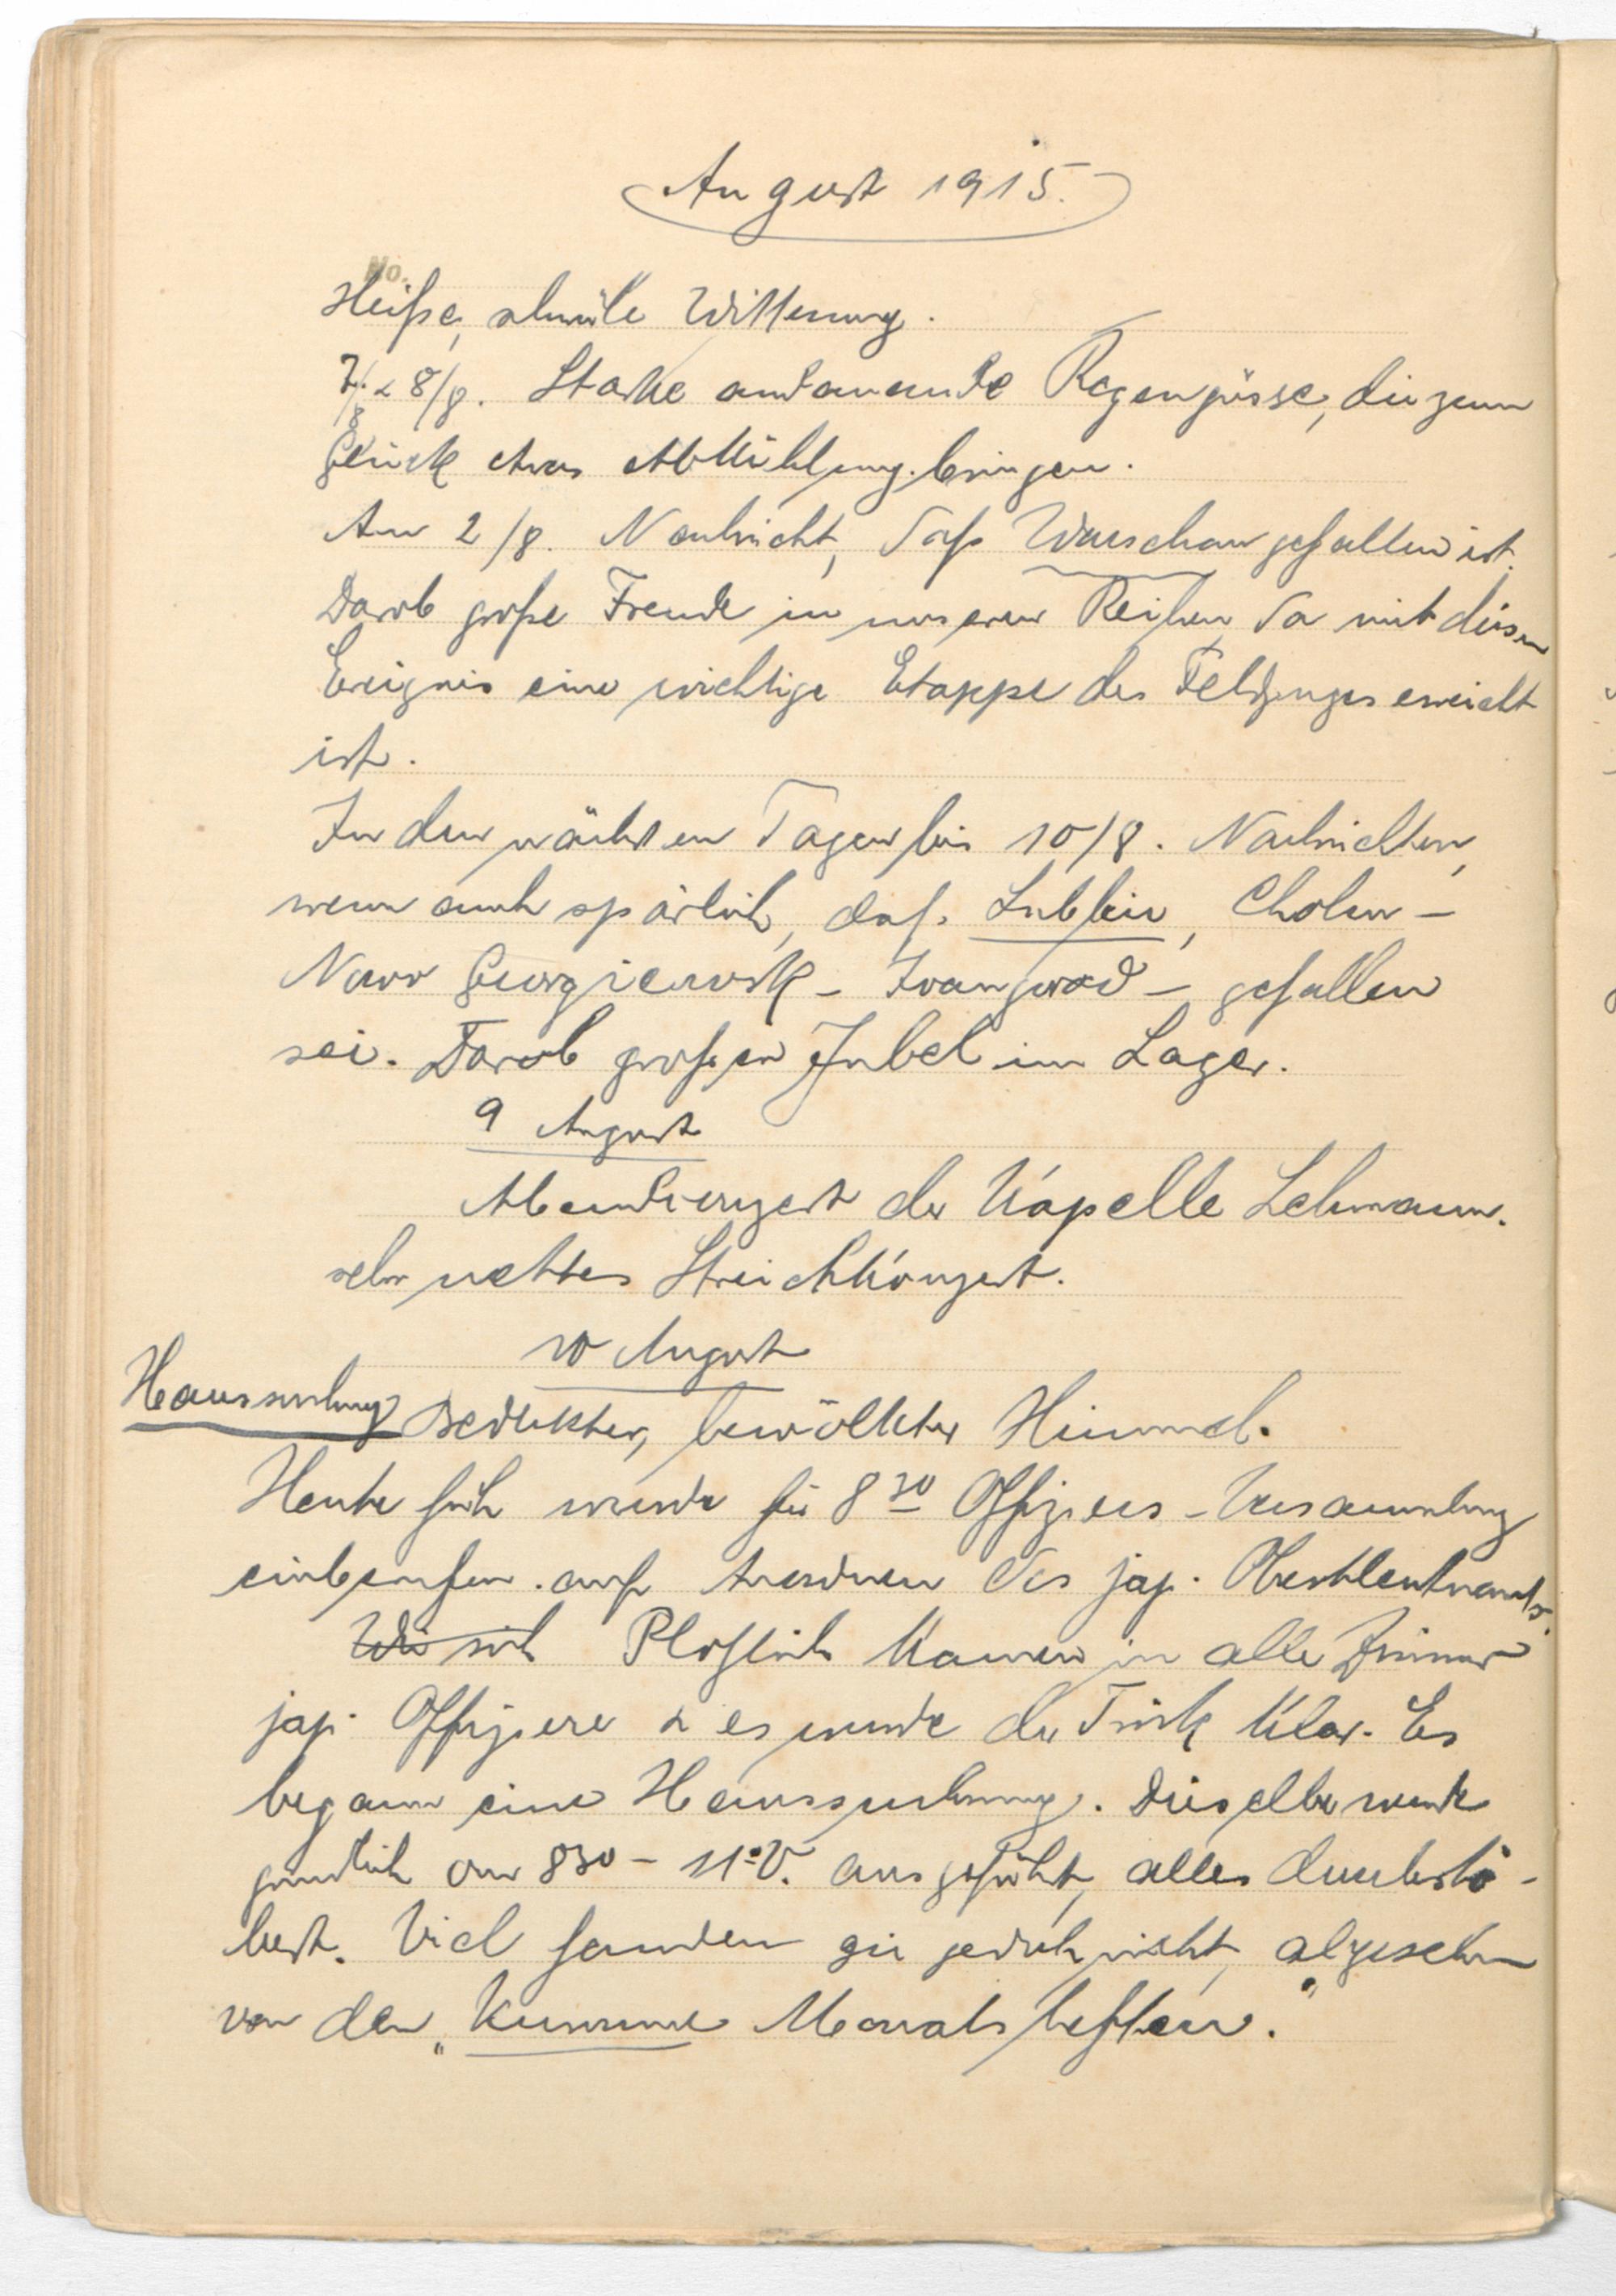 August 1915.
No.
Heiße, schwüle Witterung.
7/8. & 8/8. Starke andauernde Regengüsse, die zum
Glück etwas Abkühlung bringen.
Am 2/8. Nachricht, daß Warschau gefallen ist.
Darob große Freude in unseren Reihen, da mit diesem
Ereignis eine wichtige Etappe des Feldzuges erreicht
ist.
In den nächsten Tagen bis 10/8. Nachrichten,
wenn auch spärlich, daß Lublin, Cholm –
Nowo Georgiewsk – Iwangorod – gefallen
sei. Darob großer Jubel im Lager.
9 August
Abendkonzert der Kapelle Lehmann.
sehr nettes Streichkonzert.
10 August
Haussuchung
Bedeckter, bewölkter Himmel.
Heute früh wurde für 8 30 Offiziers-Versammlung
einberufen auf Anordnen des jap. Oberstleutnants.
Wir sich Plötzlich kamen in alle Zimmer
jap. Offiziere & es wurde der Trick klar. Es
begann eine Haussuchung. Dieselbe wurde
gründlich von 830 – 11º V. ausgeführt, alles durchstö-
bert. Viel fanden sie jedoch nicht, abgesehen
von den „Kurume Monatsheften."